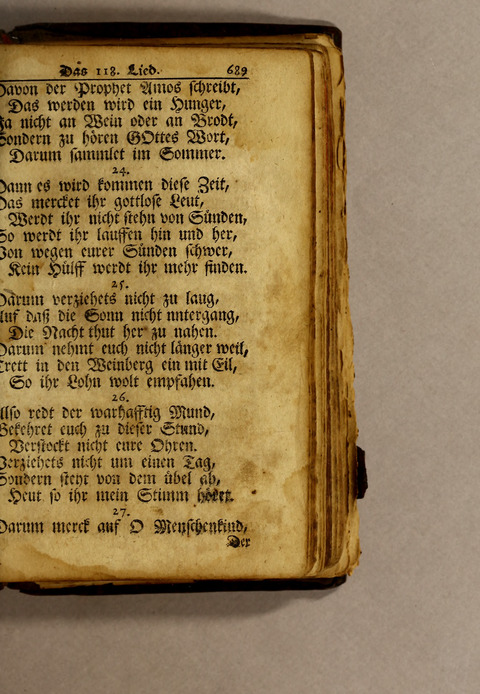 Das 118. Lied. 689
Davon der Prophet Amos schreibt,
Das werden wird ein Hunger,
Ja nicht an Wein oder an Brodt,
Sondern zu hören GOttes Wort,
Darum sammlet im Sommer.
24.
Dann es wird kommen diese Zeit,
Das mercket ihr gottlose Leut,
Werdt ihr nicht stehn von Sünden,
So werdt ihr lauffen hin und her,
Von wegen eurer Sünden schwer,
Kein Hülff werdt ihr mehr finden.
25.
Darum verziehets nicht zu lang,
Auf daß die Sonn nicht untergang,
Die Nacht thut her zu nahen.
Darum nehmt euch nicht länger weil,
Trett in den Weinberg ein mit Eil,
So ihr Lohn wolt empfahen.
26.
Also redt der warhafftig Mund,
Bekehret euch zu dieser Stund,
Verstockt nicht eure Ohren.
Verziehets nicht um einen Tag,
Sondern steht von dem übel ab,
Heut so ihr mein Stimm höret.
27.
Darum merck auf O Menschenkind,
Der